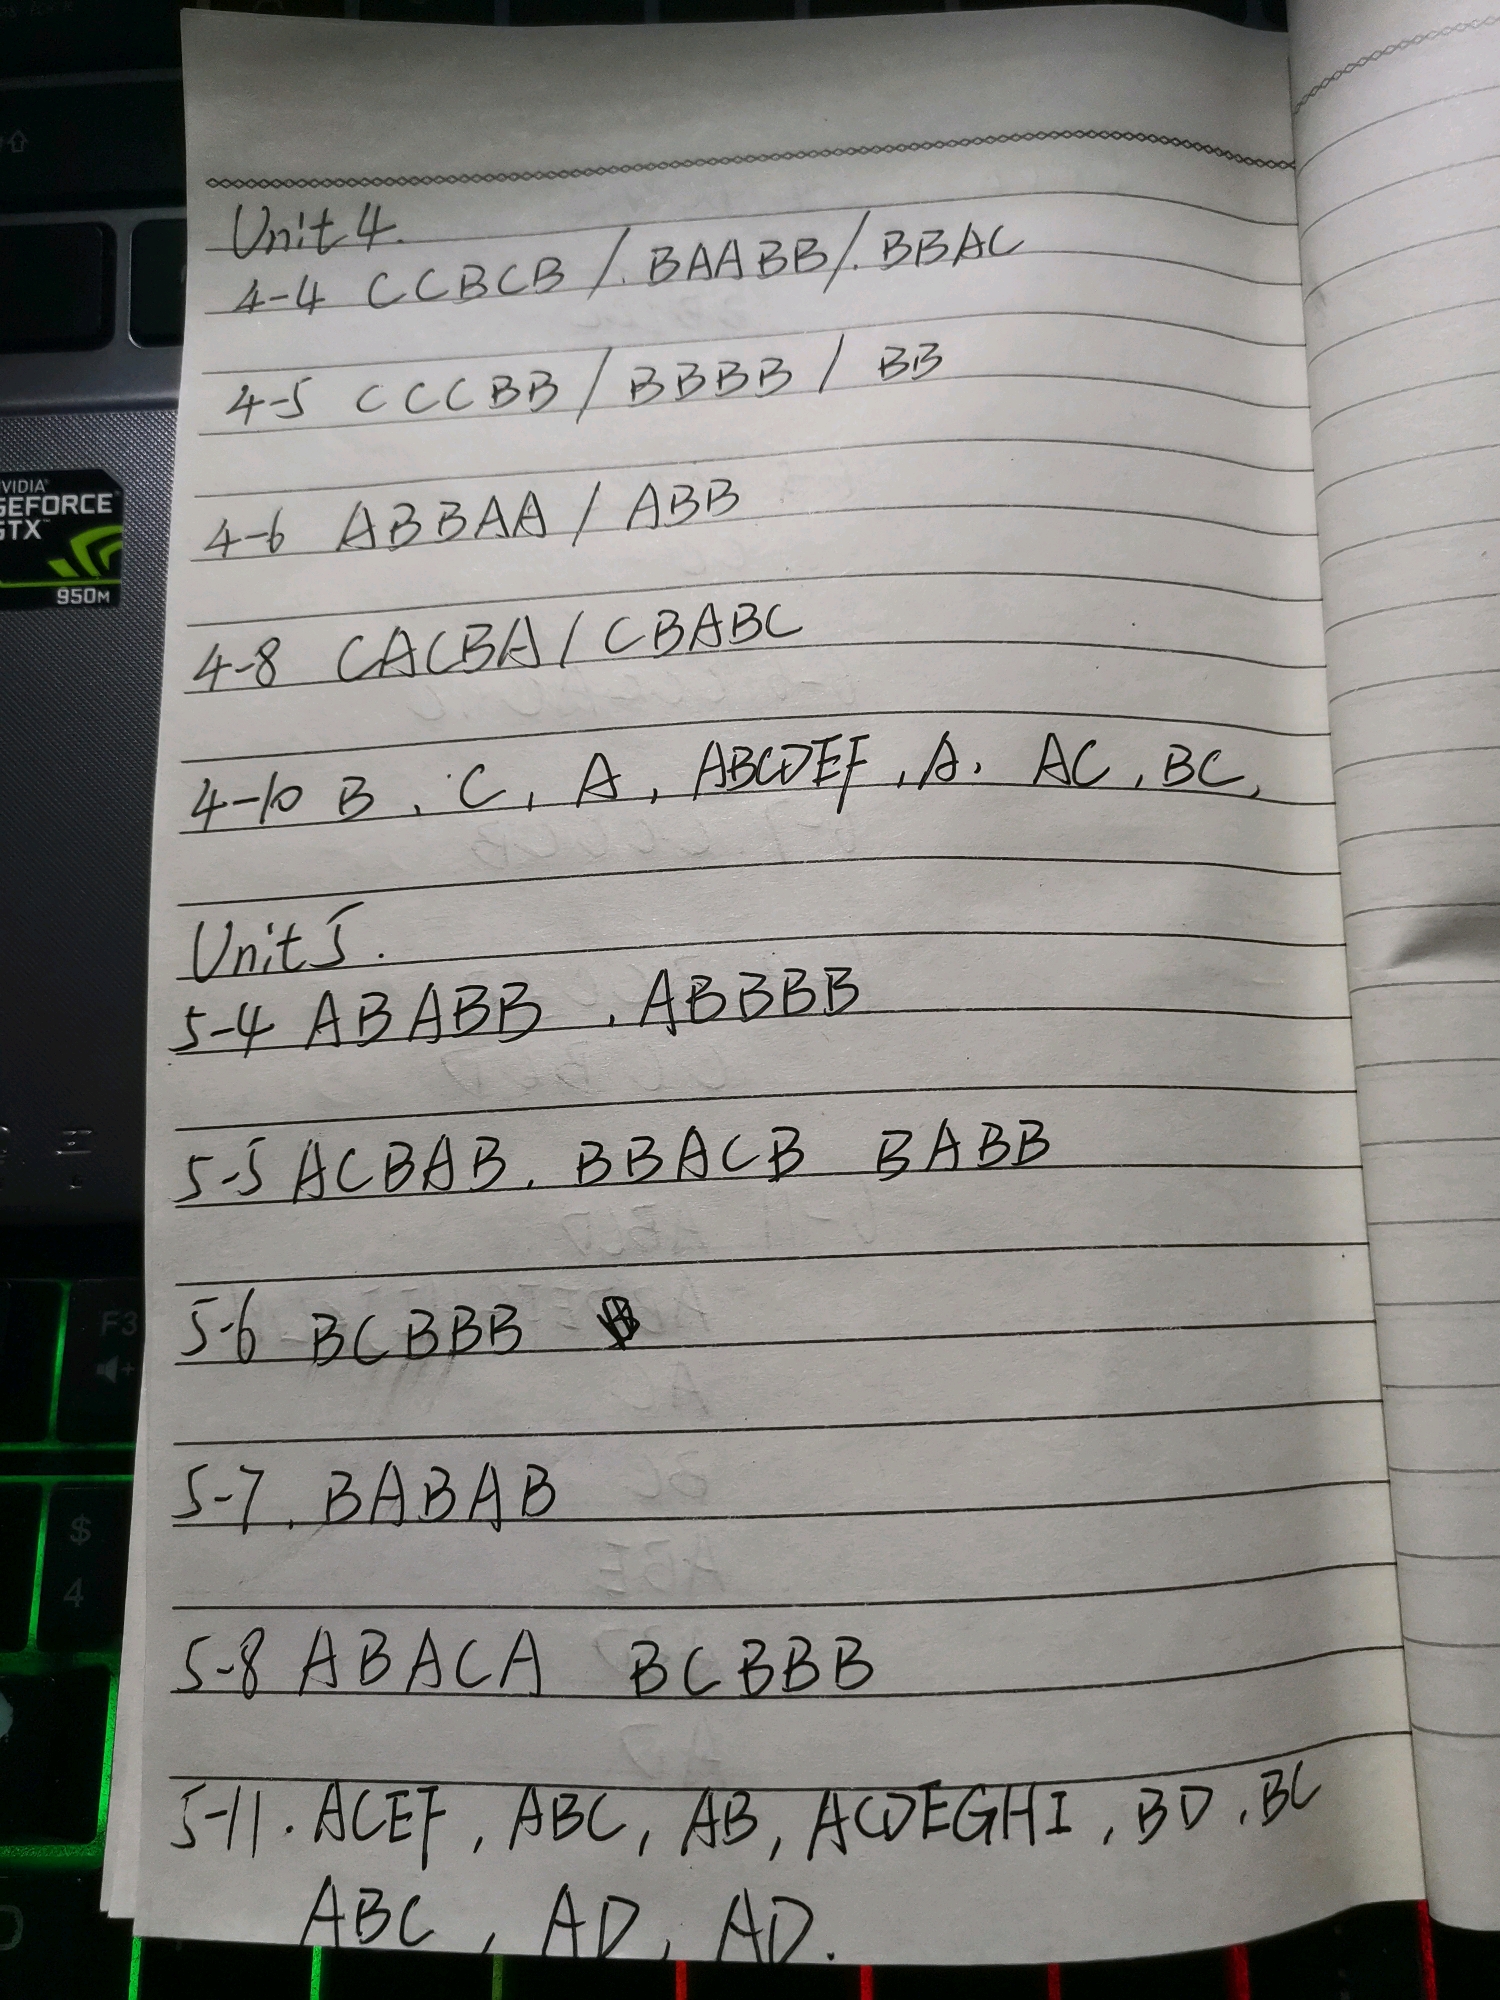 Unit 4.
4-4 CCBCB / BAABB / BBAC
4-5 CCCBB / BBBB / BB
4-6 ABBAA / ABB
4-8 CACBA / CBABC
4-10 B, C, A, ABCDEF, A, AC, BC,
Unit 5.
5-4 ABABB, ABBBB
5-5 ACBAB, BBACB BABB
5-6 BCBBB
5-7. BABAB
5-8 ABACA BCBBB
5-11. ACEF, ABC, AB, ACDEGHI, BD, BC
ABC, AD, AD.
VIDIA
GEFORCE
GTX
950M
F3
$
4